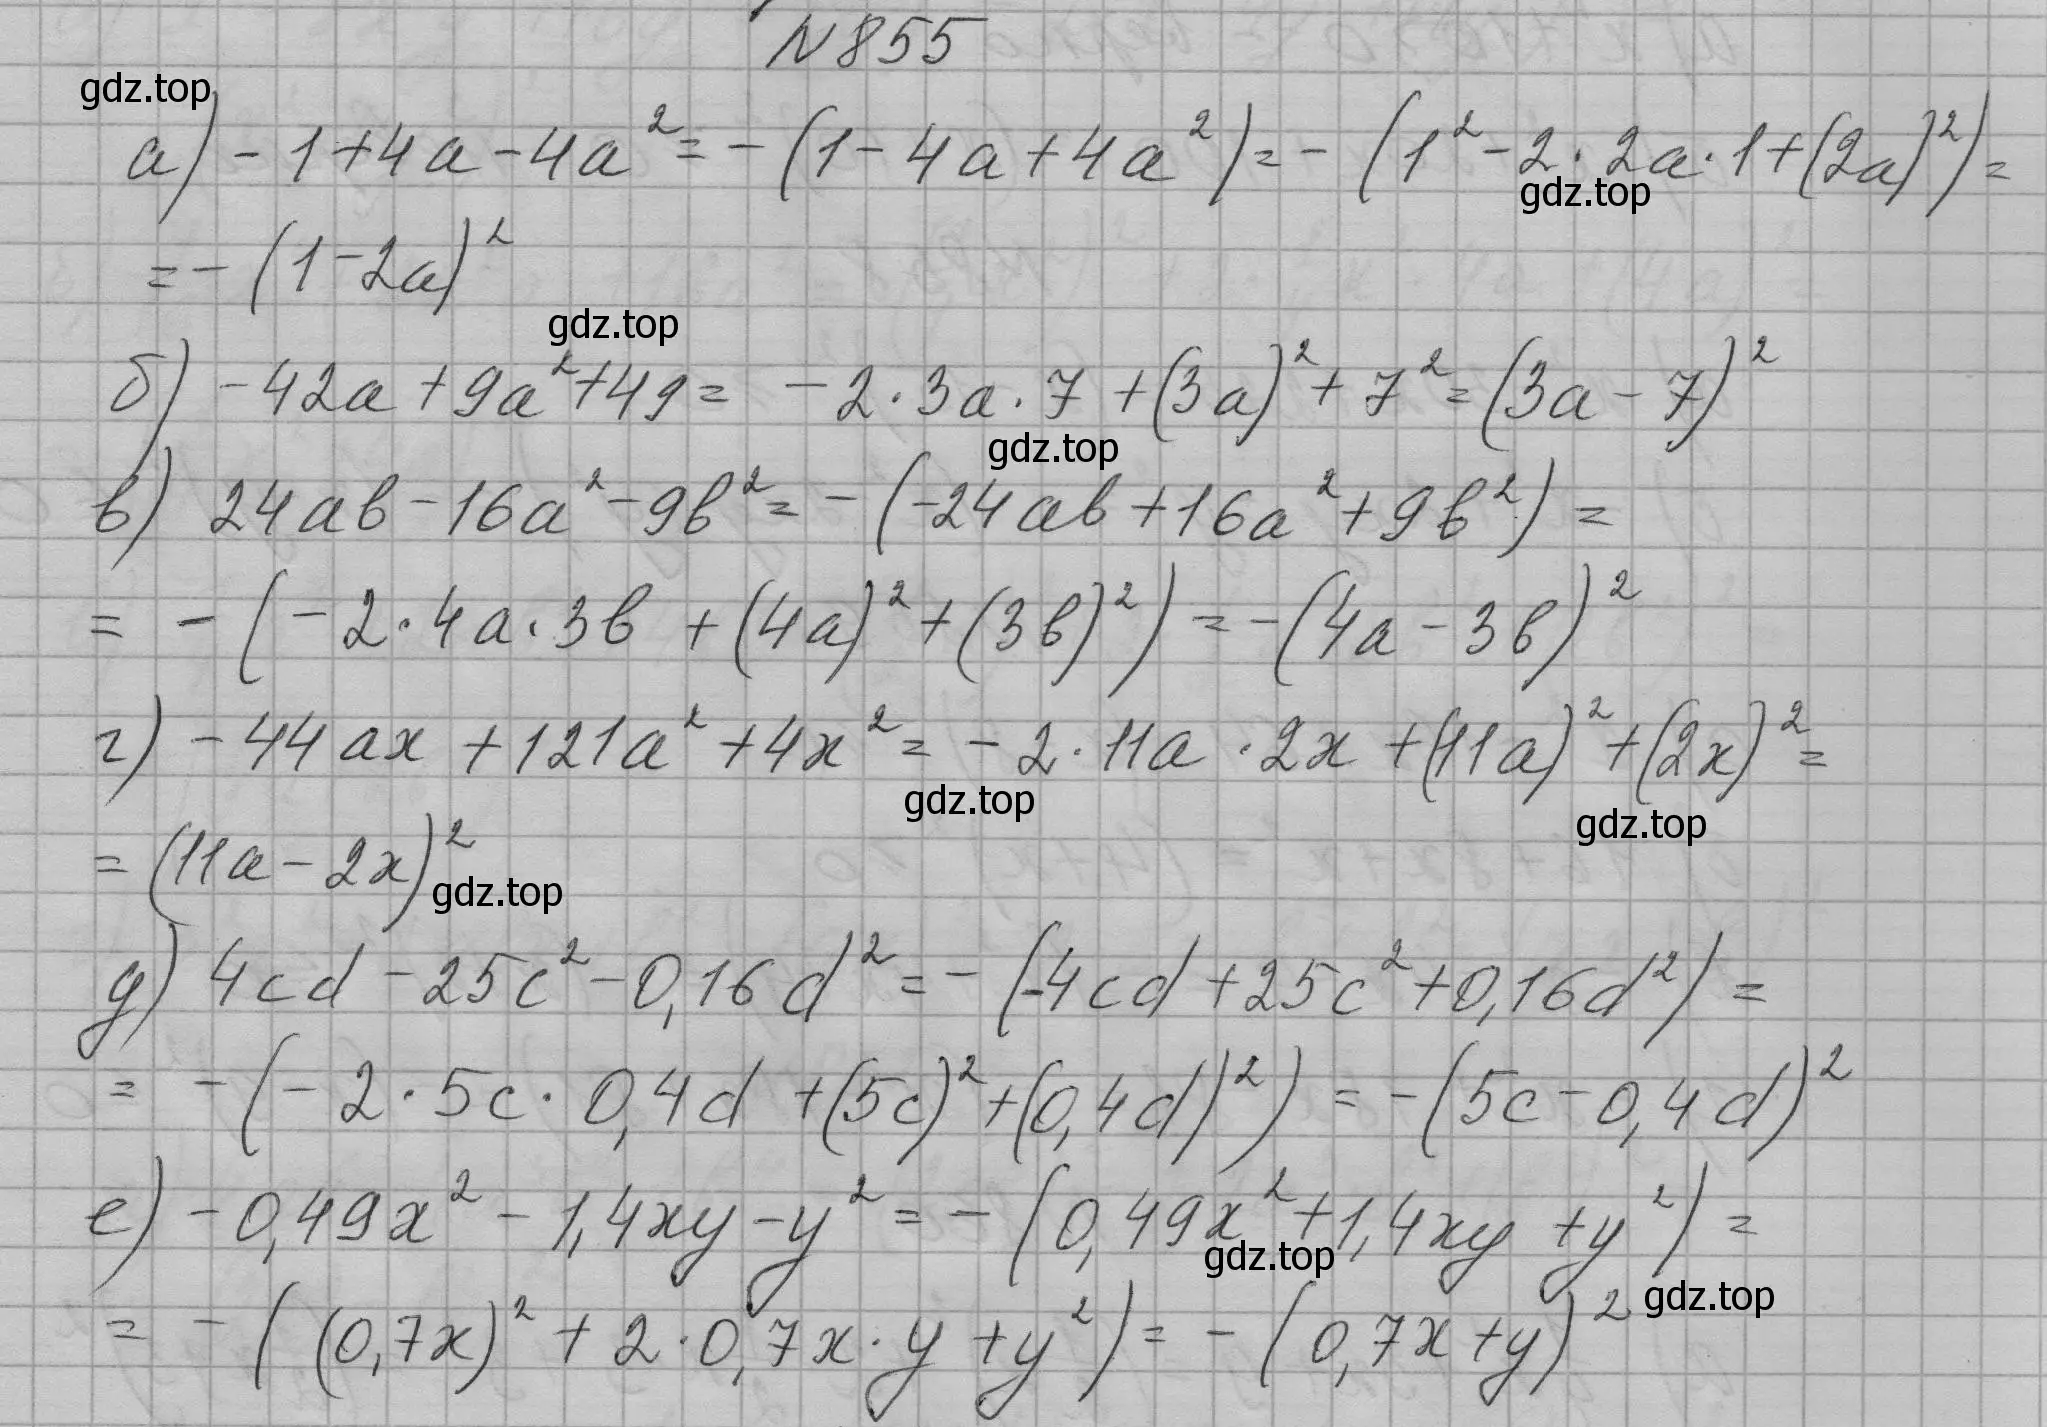 N855
gdz.top
а) -1+4a-4a²=-(1-4a+4a²)=-(1²-2·2a·1+(2a)²)=
gdz.top
=-(1-2a)²
gdz.top
б) -42a+9a²+49= -2·3a·7+(3a)²+7²=(3a-7)²
gdz.top
в) 24ab-16a²-9b²=-(-24ab+16a²+9b²)=
= -(-2·4a·3b+(4a)²+(3b)²)=-(4a-3b)²
г) -44ax+121a²+4x²=-2·11a·2x+(11a)²+(2x)²=
gdz.top
gdz.top
=(11a-2x)²
gdz.top
д) 4cd-25c²-0,16d²=-(-4cd+25c²+0,16d²)=
= -(-2·5c·0,4d+(5c)²+(0,4d)²)=-(5c-0,4d)²
е) -0,49x²-1,4xy-y²=-(0,49x²+1,4xy+y²)=
gdz.top
gdz.top
= -((0,7x)²+2·0,7x·y+y²)=-(0,7x+y)²